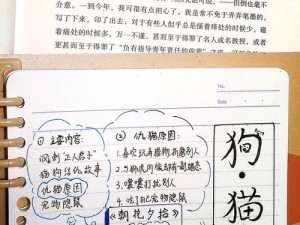 意。一到今年，我可很有点担心了。我是常不免于弄弄笔墨的，
写了下来，印了出去，对于有些人似乎总是搔着痒处的时候少，碰
着痛处的时候多。万一不谨，甚而至于得罪了名人或名教授，或者
更甚而至于得罪了“负有指导青年责任的前辈”之流，可就危险已
① 主要内容:
讽刺“正人君子”
猫狗结仇故事
仇猫原因
宠物隐鼠
② 仇猫原因:
1. 喜欢玩弄猎物，折磨别人
3. 嚎嚎打扰别人
4. 吃了自己宠物隐鼠
《朝花夕拾》
狗·猫